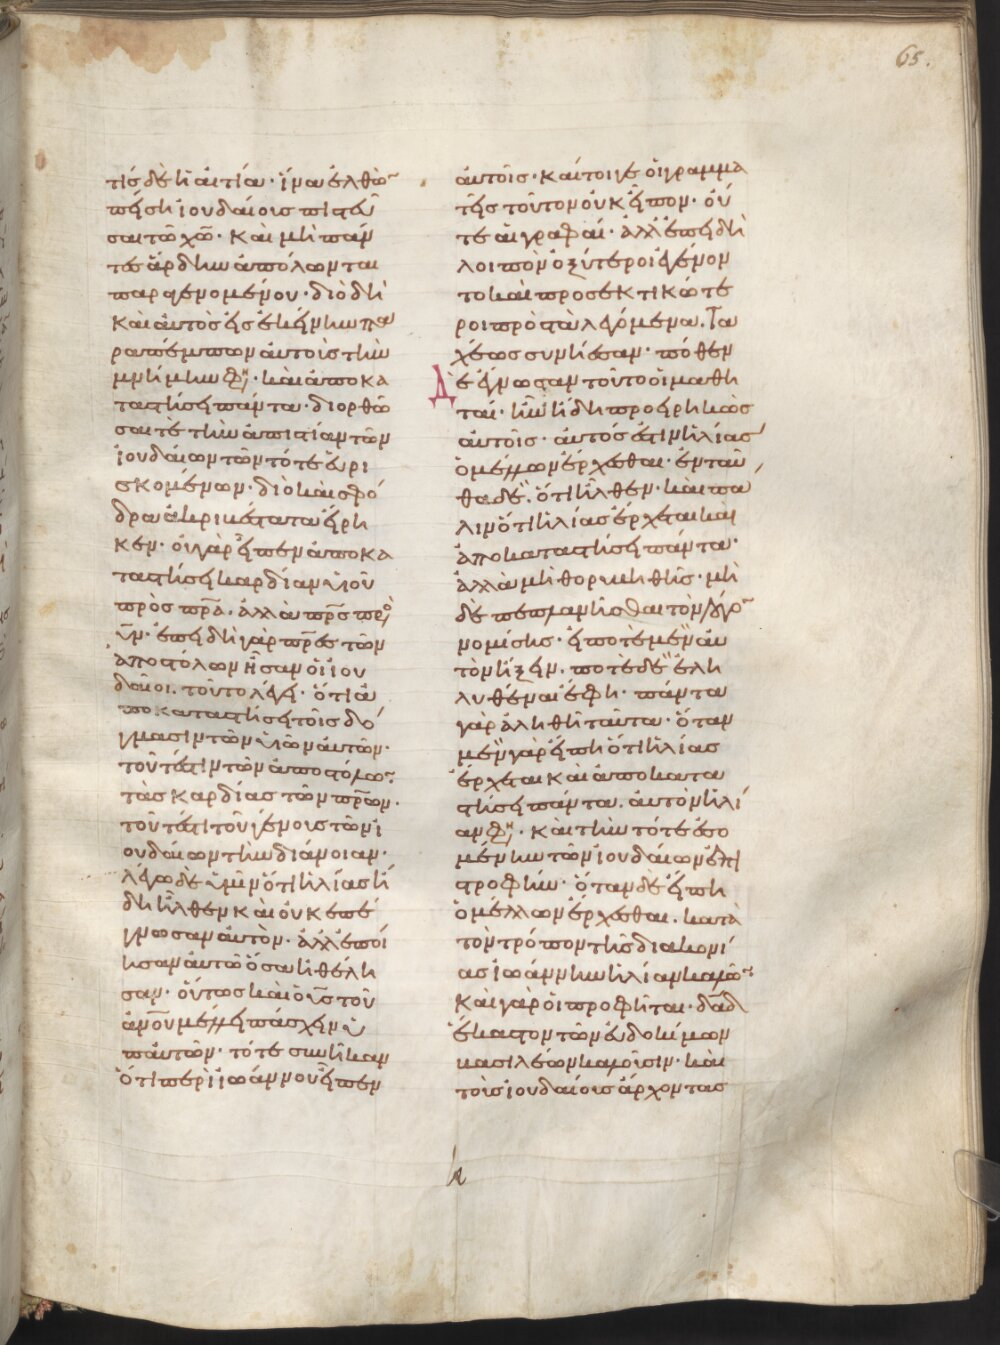 65.
τίς δὲ ἡ αἰτία· ἵνα ἐλθὼ(ν)
πείση ἰουδαίοις πιστεῦ
σαι τῶ χῶ· καὶ μὴ πάν
τες ἄρδην ἀπόλωνται
παραγενομένου· διὸ δὴ
καὶ αὐτὸς εἰς ἐκείνην πα
ραπέμπων αὐτοὺς τὴν
μνήμην φη· καὶ ἀποκα
ταστήσει πάντα· διορθώ
σαι τὲ τὴν ἀπιστίαν τῶν
ἰουδαίων τῶν τότε εὑρι
σκομένων· διὸ καὶ σφό
δρα ἀκριβέστατα εἴρη
κεν· οὐ γὰρ εἶπεν ἀποκα
ταστήσει καρδίαν υἱοῦ
πρὸς πρα· ἀλλὰ πρς προς
υν· ἐπειδὴ γὰρ πρες τῶν
ἀποστόλων ἦσαν οἱ ἰου
δαῖοι. τοῦτο λέγει· ὅτι ἀ
ποκαταστήσει τοῖς δό
γμασιν τῶν υἱῶν αὐτῶν·
τοῦτέστιν τῶν ἀποστόλω(ν)·
τὰς καρδίας τῶν πρων·
τοῦτέστι τοῦ γένους τῶν ἰ
ουδαίων τὴν διάνοιαν·
λέγω δὲ ὑμῖν ὅτι ἠλίας ἤ
δη ἦλθεν καὶ οὐκ ἐπέ
γνωσαν αὐτόν· ἀλλ' ἐποί
ησαν αὐτῶ ὅσα ἠθέλη
σαν· οὕτως καὶ ὁ υς τοῦ
ανου μέλλει πάσχειν ὑ
π' αὐτῶν· τότε συνῆκαν
ὅτι περὶ ἰωάννου εἶπεν
αὐτοῖς· καίτοιγε οἱ γραμμα
τεῖς τοῦτον οὐκ εἶπον· οὔ
τε αἱ γραφαί· ἀλλ' ἐπειδὴ
λοιπὸν ὀξύτεροι ἐγένον
το καὶ προσεκτικώτε
ροι πρὸς τὰ λεγόμενα. Τα
χέως συνήεσαν· πόθεν
Δὲ ἔγνωσαν τοῦτο οἱ μαθη
ταί· ἦν ἤδη προειρηκὼς
αὐτοῖς· αὐτός ἐστιν ἠλίας
ὁ μέλλων ἔρχεσθαι· ἐνταῦ
θα δὲ· ὅτι ἦλθεν· καὶ πά
λιν ὅτι ἠλίας ἔρχεται καὶ
ἀποκαταστήσει πάντα·
ἀλλὰ μὴ θορυβηθῆς· μὴ
δὲ πεπλανῆσθαι τὸν λόγο(ν)
νομίσης· εἴ ποτὲ μὲν αὐ
τὸν ἥξειν. ποτὲ δὲ ἐλη
λυθέναι ἔφη· πάντα
γὰρ ἀληθῆ ταῦτα· ὅταν
μὲν γὰρ εἴπη ὅτι ἠλίας
ἔρχεται καὶ ἀποκατα
στήσει πάντα. αὐτὸν ἠλί
αν φη· καὶ τὴν τότε ἐσο
μένην τῶν ἰουδαίων ἐπι
στροφήν· ὅταν δὲ εἴπη
ὁ μέλλων ἔρχεσθαι. κατὰ
τὸν τρόπον τῆς διακονί
ας ἰωάννην ἠλίαν καλῶ(ν)·
Καὶ γὰρ οἱ προφῆται· δαδ
ἕκαστον τῶν εὐδοκίμων
βασιλέων καλοῦσιν· καὶ
τοὺς ἰουδαίους ἄρχοντας